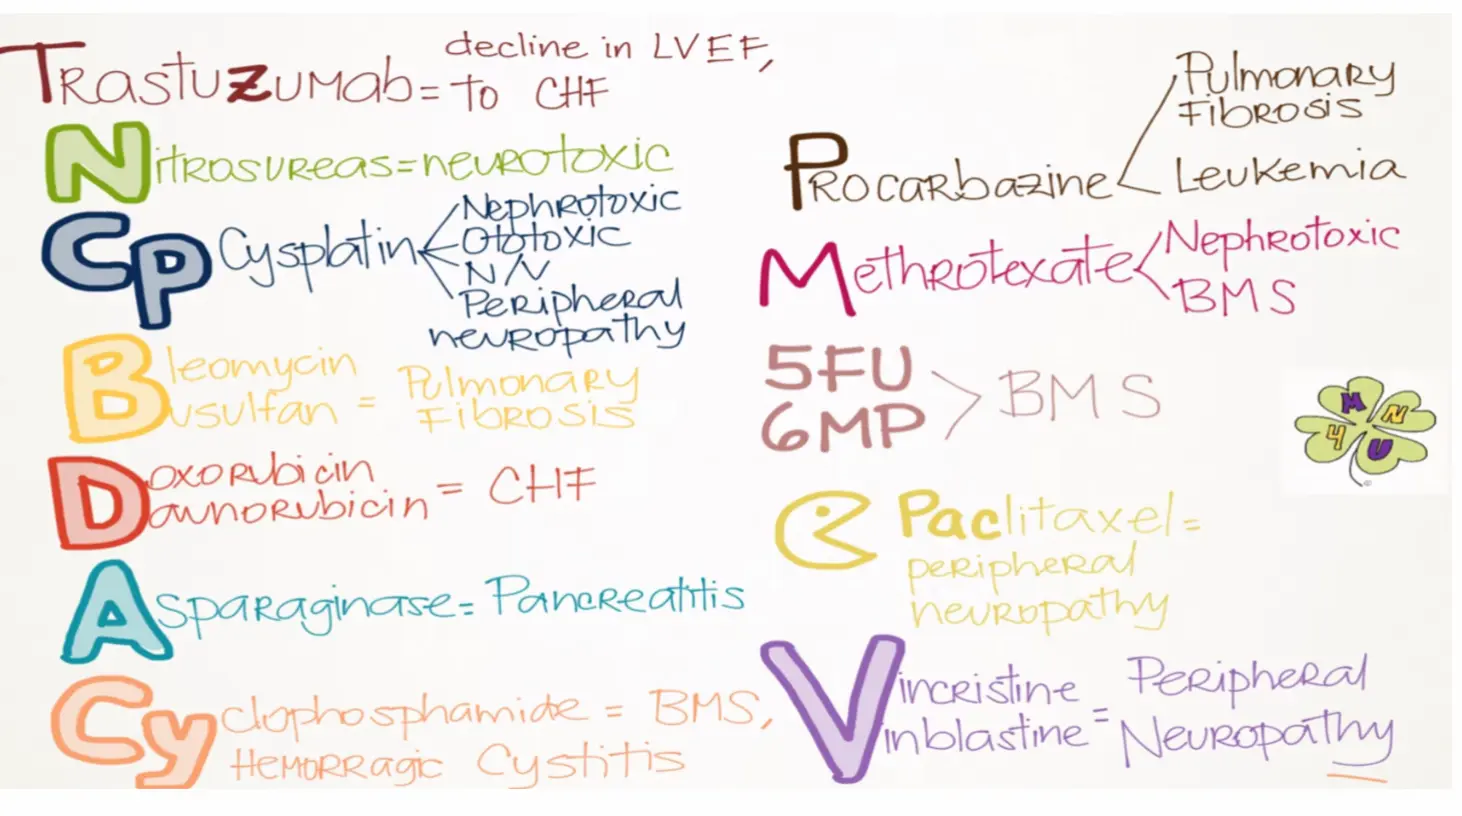 decline in LVEF,
Trastuzumab = to CHF
Nitrosureas = neurotoxic
Nephrotoxic
Ototoxic
CP Cysplatin
N/V
Peripheral
neuropathy
Bleomycin
Busulfan = Pulmonary
Fibrosis
Doxorubicin
Daunorubicin = CHF
Asparaginase = Pancreatitis
Cyclophosphamide = BMS,
Hemorragic Cystitis
Pulmonary
Fibrosis
Procarbazine
Leukemia
Methrotexate
Nephrotoxic
BMS
5FU
6MP > BMS
Paclitaxel =
peripheral
neuropathy
Vincristine
Vinblastine = Peripheral
Neuropathy
M N
4 U
©